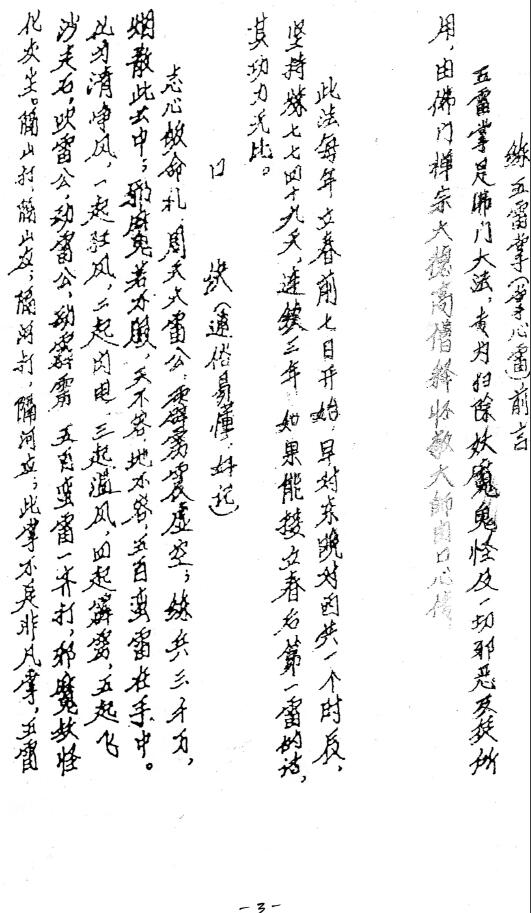 练五雷掌（掌心雷）前言
五雷掌是佛门大法，专为扫除妖魔鬼怪及一切邪恶及类所
用，由佛门禅宗大德高僧释怀 大师内口心传
此法每年立春前七日开始，早对东晚对西共一个时辰，
坚持炼七七四十九天，连续三年，如果能接立春后第一雷的话，
其功力无比。
口 诀（通俗易懂，好记）
志心皈命礼，周天大雷公，霹雳震虚空；练兵三千万，
烟散此去中；邪魔鬼若不服，天不容，地不容，五百蛮雷在手中。
此为清净风，一起狂风，二起闪电，三起 风，四起霹雳，五起飞
沙走石，吹雷公，动雷公，动霹雳 五百蛮雷一齐打，邪魔妖怪
化灰尘。隔山打，隔山应；隔河打，隔河应；此掌不是非凡掌，五雷
-3-